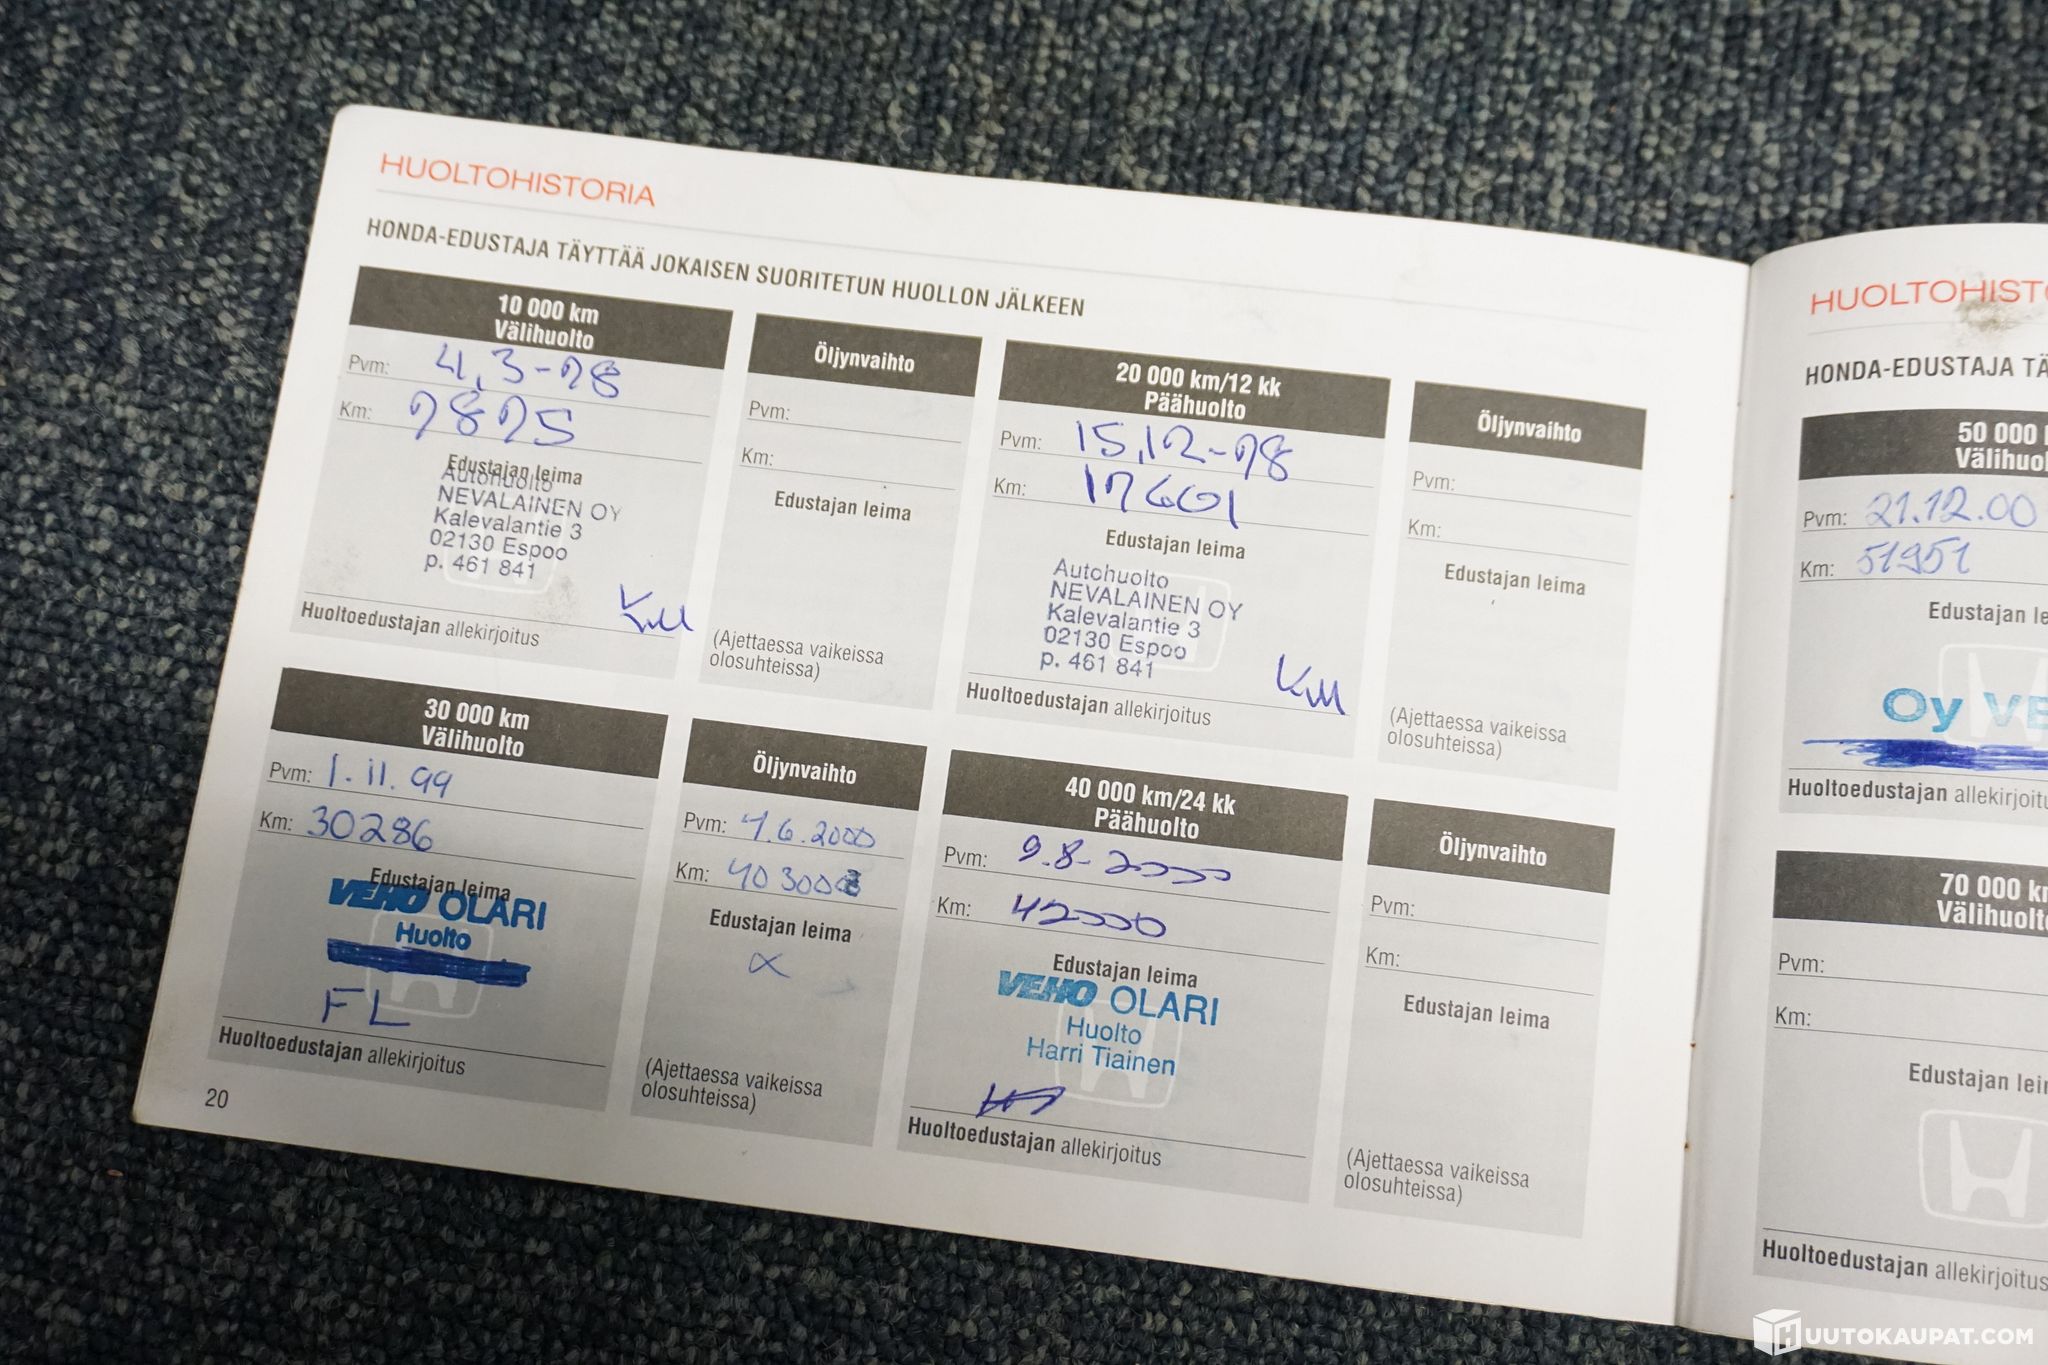 HUOLTOHISTORIA
HONDA-EDUSTAJA TÄYTTÄÄ JOKAISEN SUORITETUN HUOLLON JÄLKEEN
10 000 km
Välihuolto
Pvm: 4.3-98
Km: 9895
Edustajan leima
Autohuolto
NEVALAINEN OY
Kalevalantie 3
02130 Espoo
p. 461 841
Huoltoedustajan allekirjoitus
Öljynvaihto
Pvm:
Km:
Edustajan leima
(Ajettaessa vaikeissa
olosuhteissa)
20 000 km/12 kk
Päähuolto
Pvm: 15,12-98
Km: 17601
Edustajan leima
Autohuolto
NEVALAINEN OY
Kalevalantie 3
02130 Espoo
p. 461 841
Huoltoedustajan allekirjoitus
Öljynvaihto
Pvm:
Km:
Edustajan leima
(Ajettaessa vaikeissa
olosuhteissa)
30 000 km
Välihuolto
Pvm: 1.11.99
Km: 30286
Edustajan leima
VEHO OLARI
Huolto
FL
Huoltoedustajan allekirjoitus
Öljynvaihto
Pvm: 7.6.2000
Km:
Edustajan leima
(Ajettaessa vaikeissa
olosuhteissa)
40 000 km/24 kk
Päähuolto
Pvm: 9.8-2000
Km: 42000
Edustajan leima
VEHO OLARI
Huolto
Harri Tiainen
Huoltoedustajan allekirjoitus
Öljynvaihto
Pvm:
Km:
Edustajan leima
(Ajettaessa vaikeissa
olosuhteissa)
20
HUOLTOHISTO
HONDA-EDUSTAJA TÄ
50 000
Välihuol
Pvm: 21.12.00
Km: 51951
Edustajan le
Oy VE
Huoltoedustajan allekirjoitu
70 000 k
Välihuolt
Pvm:
Km:
Edustajan lei
Huoltoedustajan allekirjoitus
HUUTOKAUPAT.COM